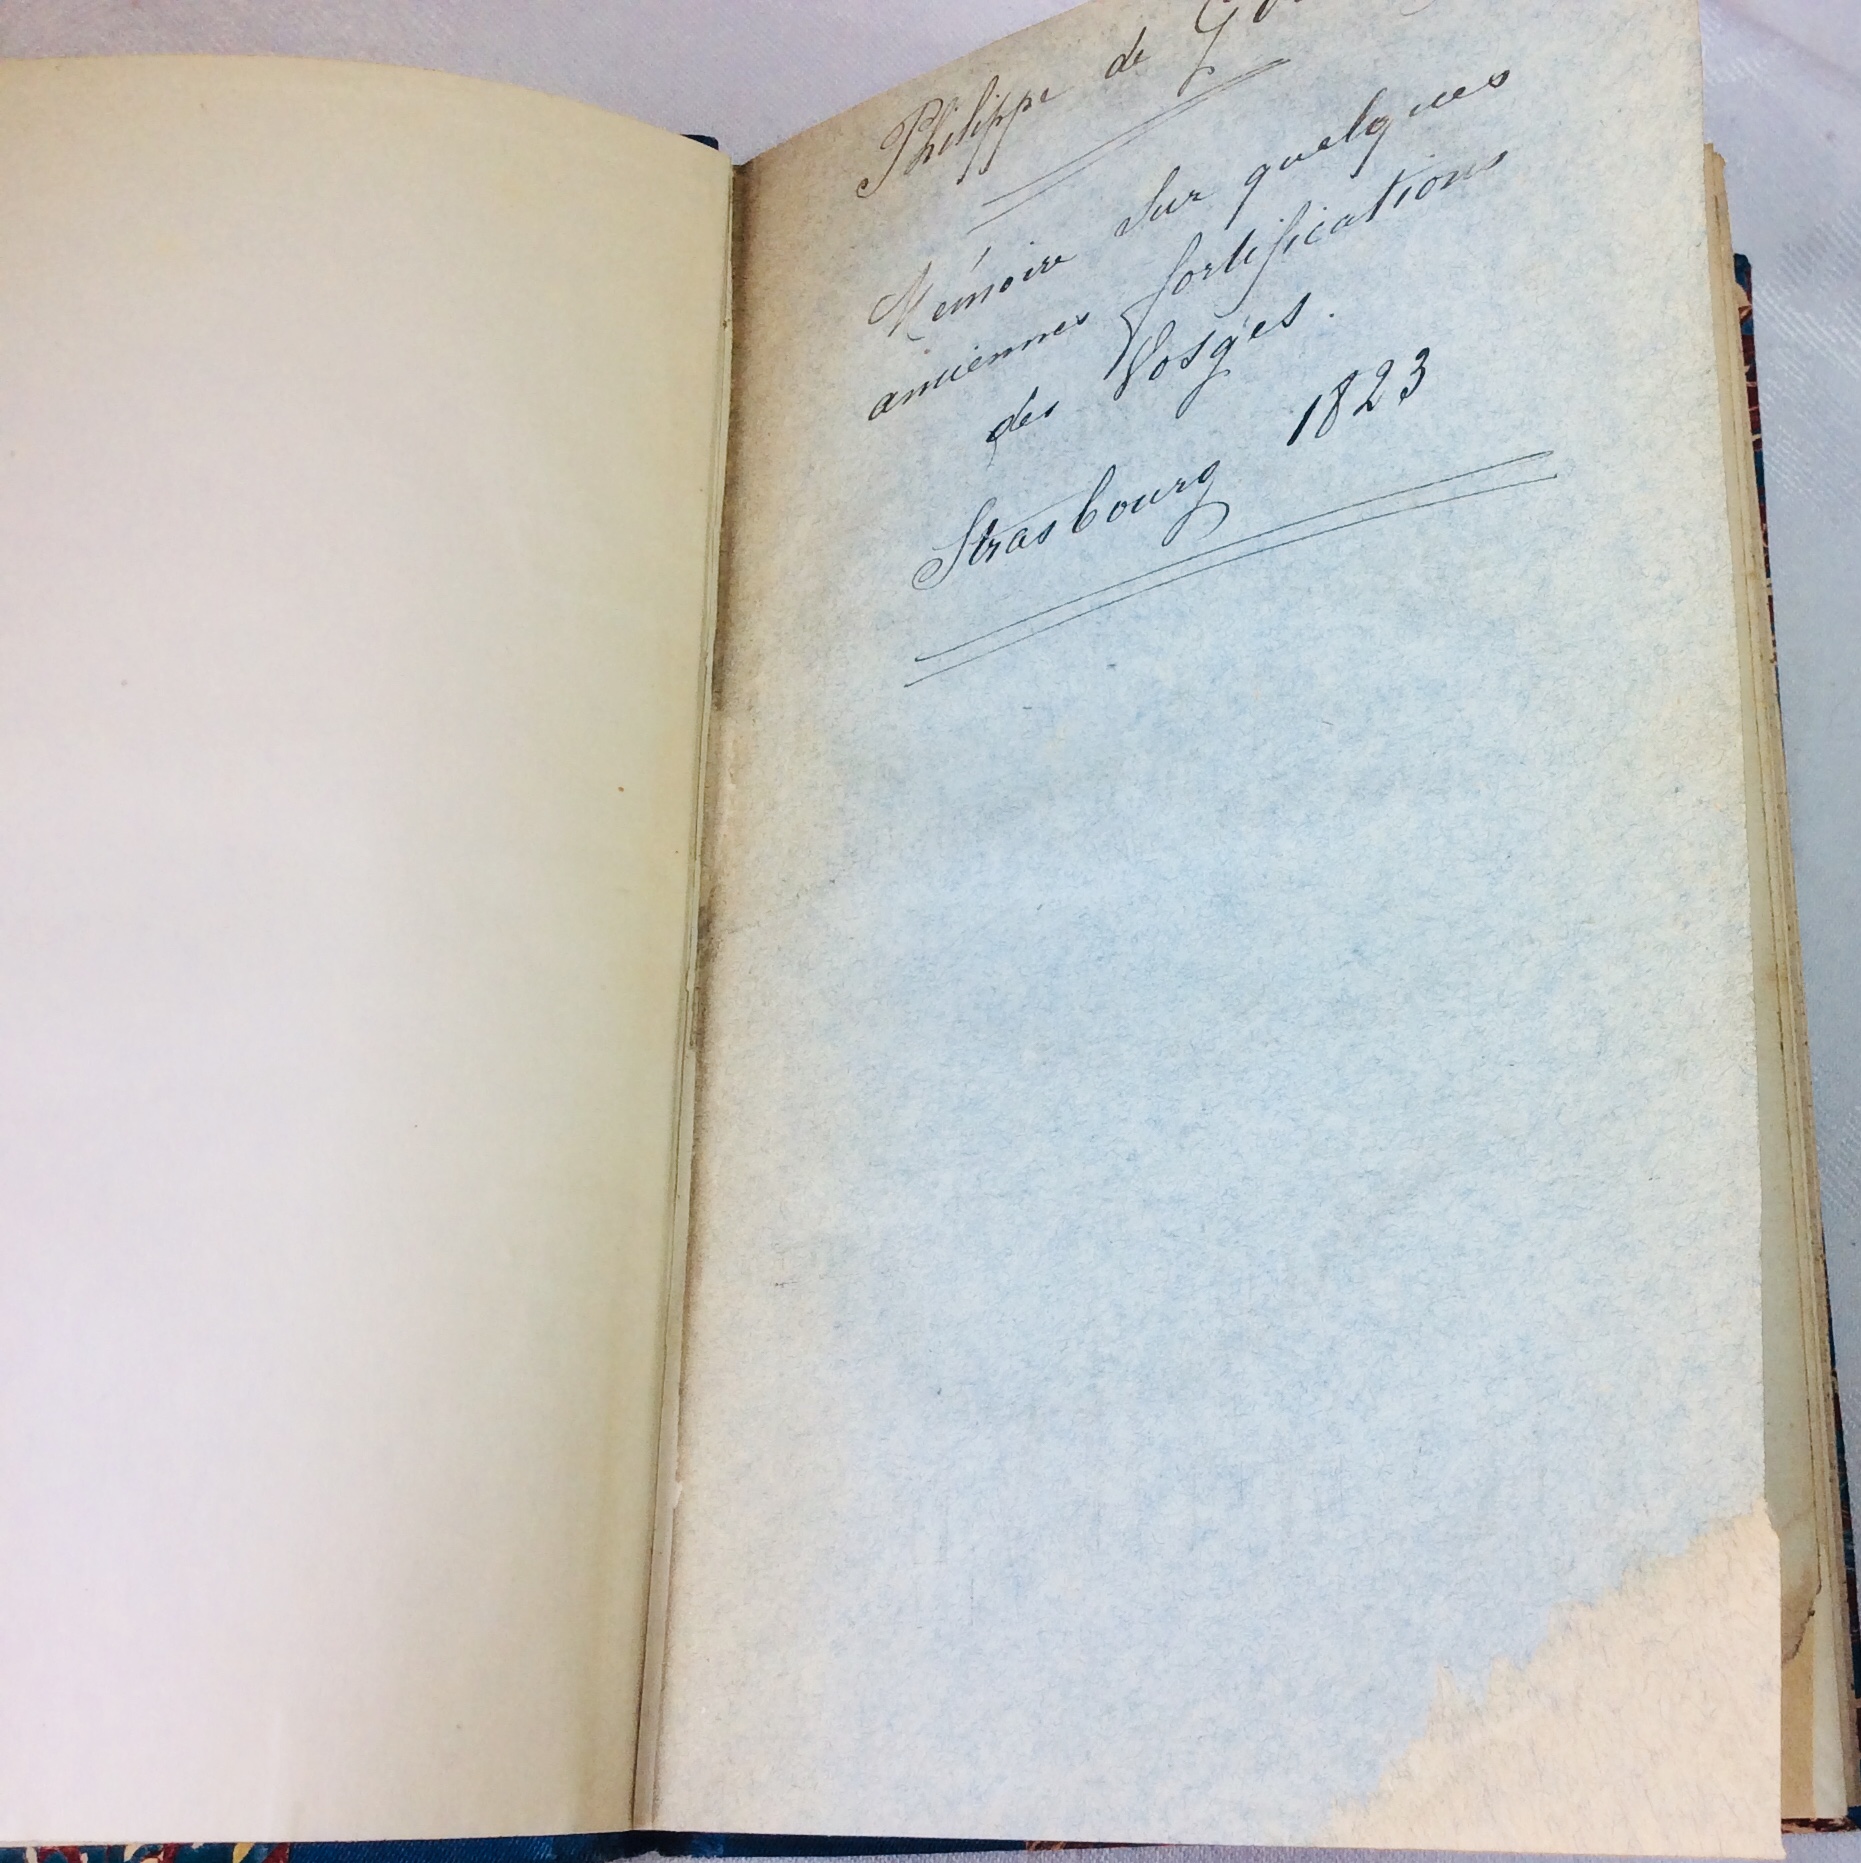 Philippe de
Mémoire sur quelques
anciennes fortifications
des Vosges.
Strasbourg 1823